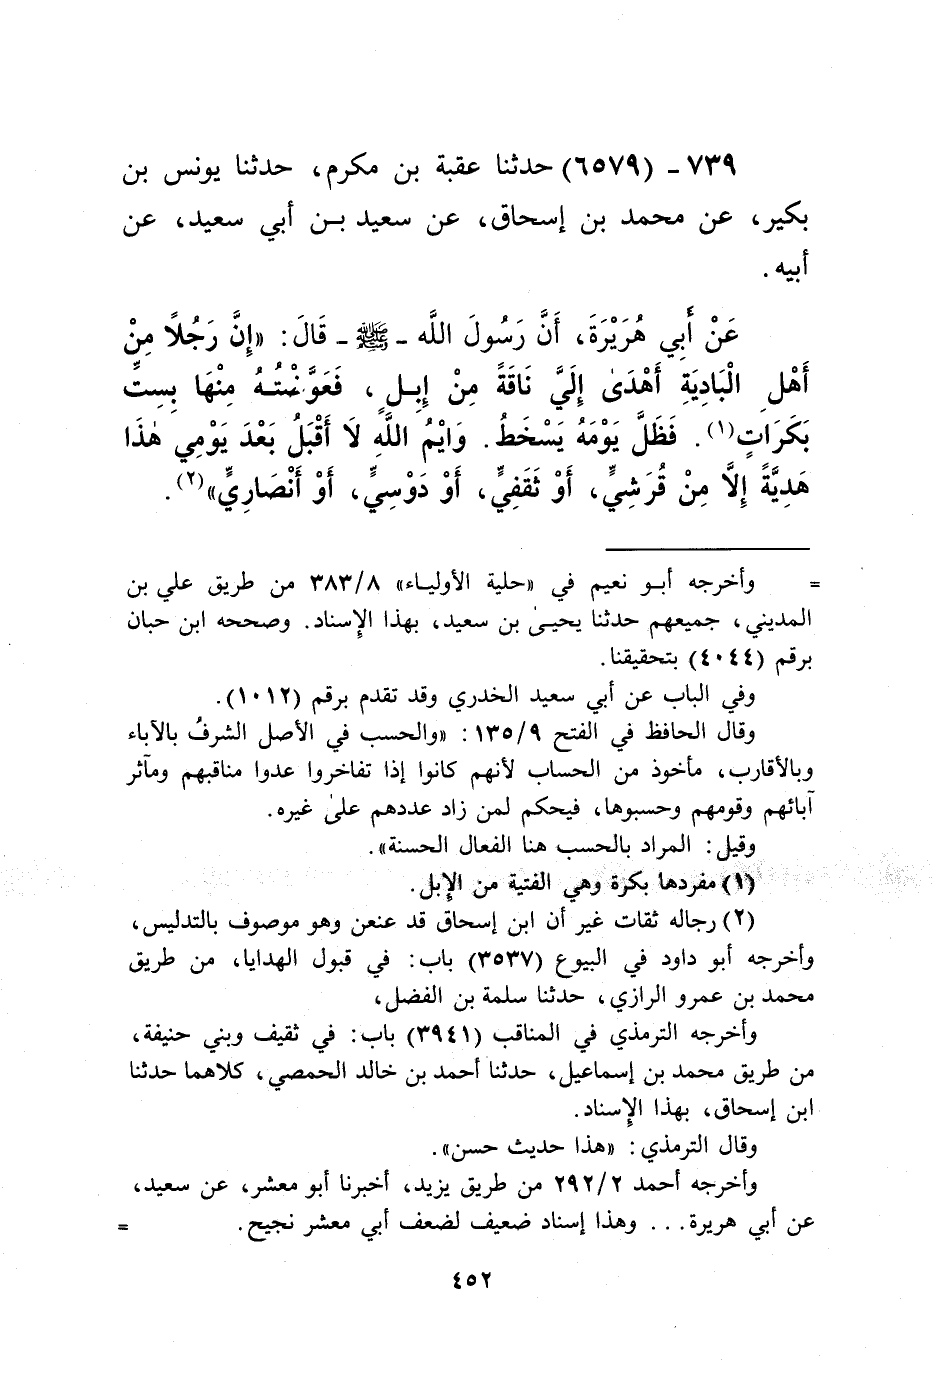 ٧٣٩ - (٦٥٧٩) حدثنا عقبة بن مكرم، حدثنا يونس بن
بكير، عن محمد بن إسحاق، عن سعيد بن أبي سعيد، عن
أبيه.
عَنْ أَبِي هُرَيْرَةَ، أَنَّ رَسُولَ اللَّه - ﷺ - قَالَ: «إِنَّ رَجُلًا مِنْ
أَهْلِ الْبَادِيَةِ أَهْدَىٰ إِلَيَّ نَاقَةً مِنْ إِبِلٍ، فَعَوَّضْتُهُ مِنْهَا بِسِتِّ
بَكَرَاتٍ(١). فَظَلَّ يَوْمَهُ يَسْخَطُ. وَايْمُ اللَّهِ لَا أَقْبَلُ بَعْدَ يَوْمِي هٰذَا
هَدِيَّةً إِلَّا مِنْ قُرَشِيٍّ، أَوْ ثَقَفِيٍّ، أَوْ دَوْسِيٍّ، أَوْ أَنْصَارِيٍّ»(٢).
= وأخرجه أبو نعيم في «حلية الأولياء» ٣٨٣/٨ من طريق علي بن
المديني، جميعهم حدثنا يحيىٰ بن سعيد، بهذا الإِسناد. وصححه ابن حبان
برقم (٤٠٤٤) بتحقيقنا.
وفي الباب عن أبي سعيد الخدري وقد تقدم برقم (١٠١٢).
وقال الحافظ في الفتح ١٣٥/٩: «والحسب في الأصل الشرفُ بالآباء
وبالأقارب، مأخوذ من الحساب لأنهم كانوا إذا تفاخروا عدوا مناقبهم ومآثر
آبائهم وقومهم وحسبوها، فيحكم لمن زاد عددهم علىٰ غيره.
وقيل: المراد بالحسب هنا الفعال الحسنة».
(١) مفردها بكرة وهي الفتية من الإِبل.
(٢) رجاله ثقات غير أن ابن إسحاق قد عنعن وهو موصوف بالتدليس،
وأخرجه أبو داود في البيوع (٣٥٣٧) باب: في قبول الهدايا، من طريق
محمد بن عمرو الرازي، حدثنا سلمة بن الفضل،
وأخرجه الترمذي في المناقب (٣٩٤١) باب: في ثقيف وبني حنيفة،
من طريق محمد بن إسماعيل، حدثنا أحمد بن خالد الحمصي، كلاهما حدثنا
ابن إسحاق، بهذا الإِسناد.
وقال الترمذي: «هذا حديث حسن».
وأخرجه أحمد ٢٩٢/٢ من طريق يزيد، أخبرنا أبو معشر، عن سعيد،
عن أبي هريرة... وهذا إسناد ضعيف لضعف أبي معشر نجيح. =
٤٥٢